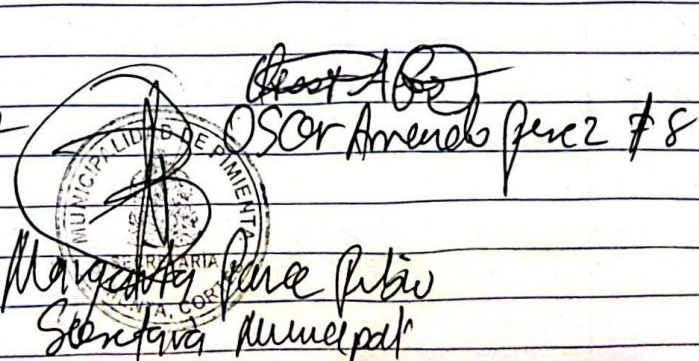 Oscar Armando Perez #8
MUNICIPALIDAD DE PIMIENTA
SECRETARIA
CORTES
Margarita
Secretaria Municipal